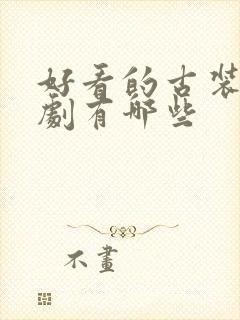 好看的古装
劇有哪些
不畫